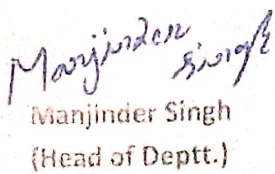 Manjinder Singh
Manjinder Singh
(Head of Deptt.)